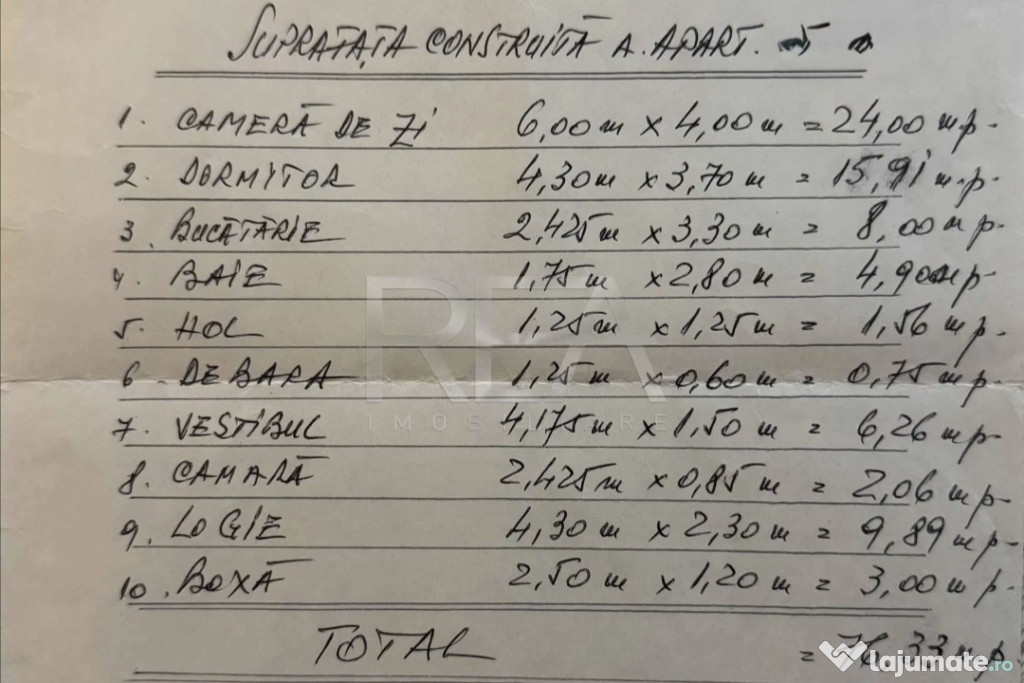 SUPRAFAȚA CONSTRUITĂ A. APART. 5
1. CAMERĂ DE ZI 6,00m x 4,00m = 24,00 m.p.
2. DORMITOR 4,30m x 3,70m = 15,91 m.p.
3. BUCĂTĂRIE 2,425m x 3,30m = 8,00 m p.
4. BAIE 1,75m x 2,80m = 4,90 m p
5. HOL 1,25m x 1,25m = 1,56 m p.
6. DEBARA 1,25m x 0,60m = 0,75 m p.
7. VESTIBUL 4,175m x 1,50m = 6,26 m p
8. CAMARĂ 2,425m x 0,85m = 2,06 m p
9. LOGIE 4,30m x 2,30m = 9,89 m p
10. BOXĂ 2,50m x 1,20m = 3,00 m p.
TOTAL = 76,33 m p
REA
IMOBILIARE
lajumate.ro